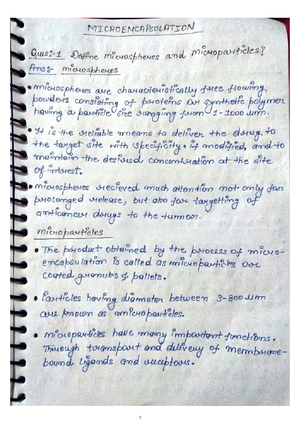 MICROENCAPSULATION
Ques:-1 Define microspheres and microparticles?
Ans:- microspheres
• microspheres are characteristically free flowing,
powders consisting of proteins or synthetic polymer
having a particle size ranging from 1-1000 µm.
• It is the reliable means to deliver the drug to
the target site with specificity, if modified, and to
maintain the desired concentration at the site
of interest.
• microspheres recieved much attention not only for
prolonged release, but also for targetting of
anticancer drugs to the tumor.
Microparticles
• The product obtained by the process of micro-
encapsulation is called as microparticles or
coated granules & pallets.
• Particles having diameter between 3-800 µm
are known as microparticles.
• microparticles have many important functions.
Through transport and delivery of membrane-
bound ligands and receptors.
1